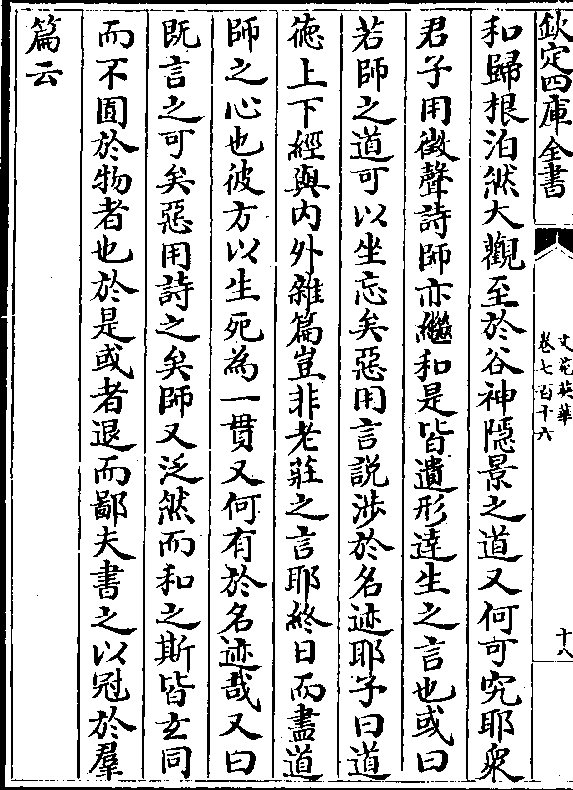 欽定四庫全書
文苑英華
卷七百十六
十八
和歸根泊然大觀至於谷神隱景之道又何可究耶衆
君子用徵聲詩師亦繼和是皆遺形達生之言也或曰
若師之道可以坐忘矣惡用言說涉於名迹耶予曰道
徳上下經與内外雜篇豈非老莊之言耶終日而盡道
師之心也彼方以生死為一貫又何有於名迹哉又曰
既言之可矣惡用詩之矣師又泛然而和之斯皆玄同
而不囿於物者也於是或者退而鄙夫書之以冠於羣
篇云